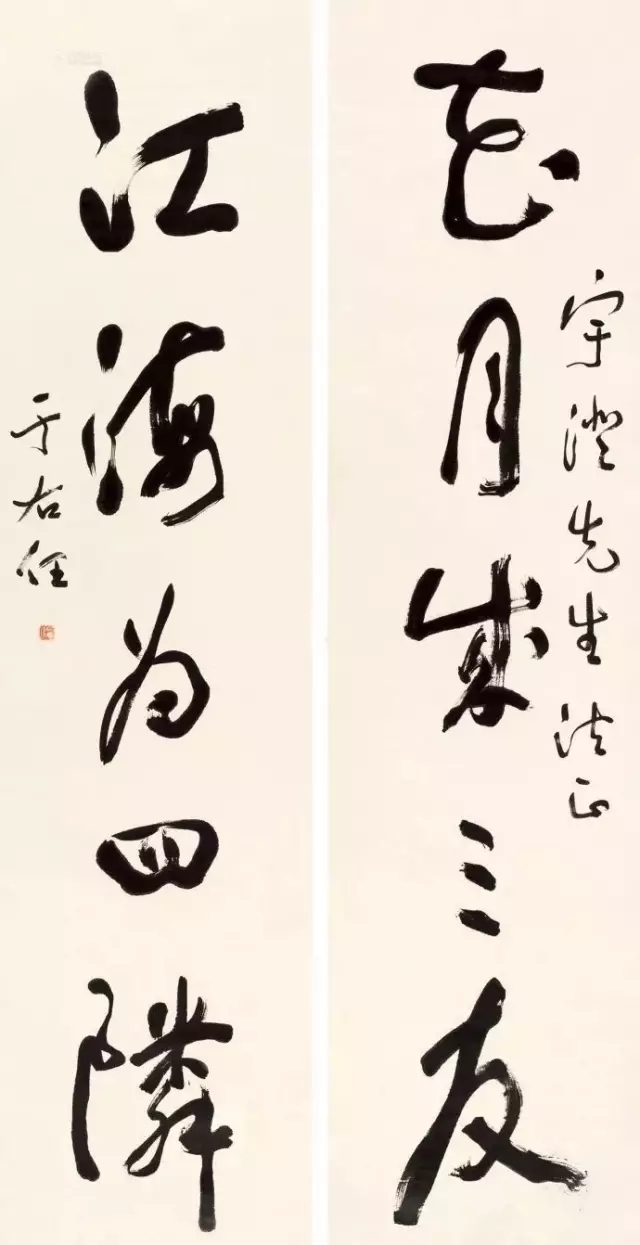 宇澄先生法正
花月成三友
江海为四隣
于右任